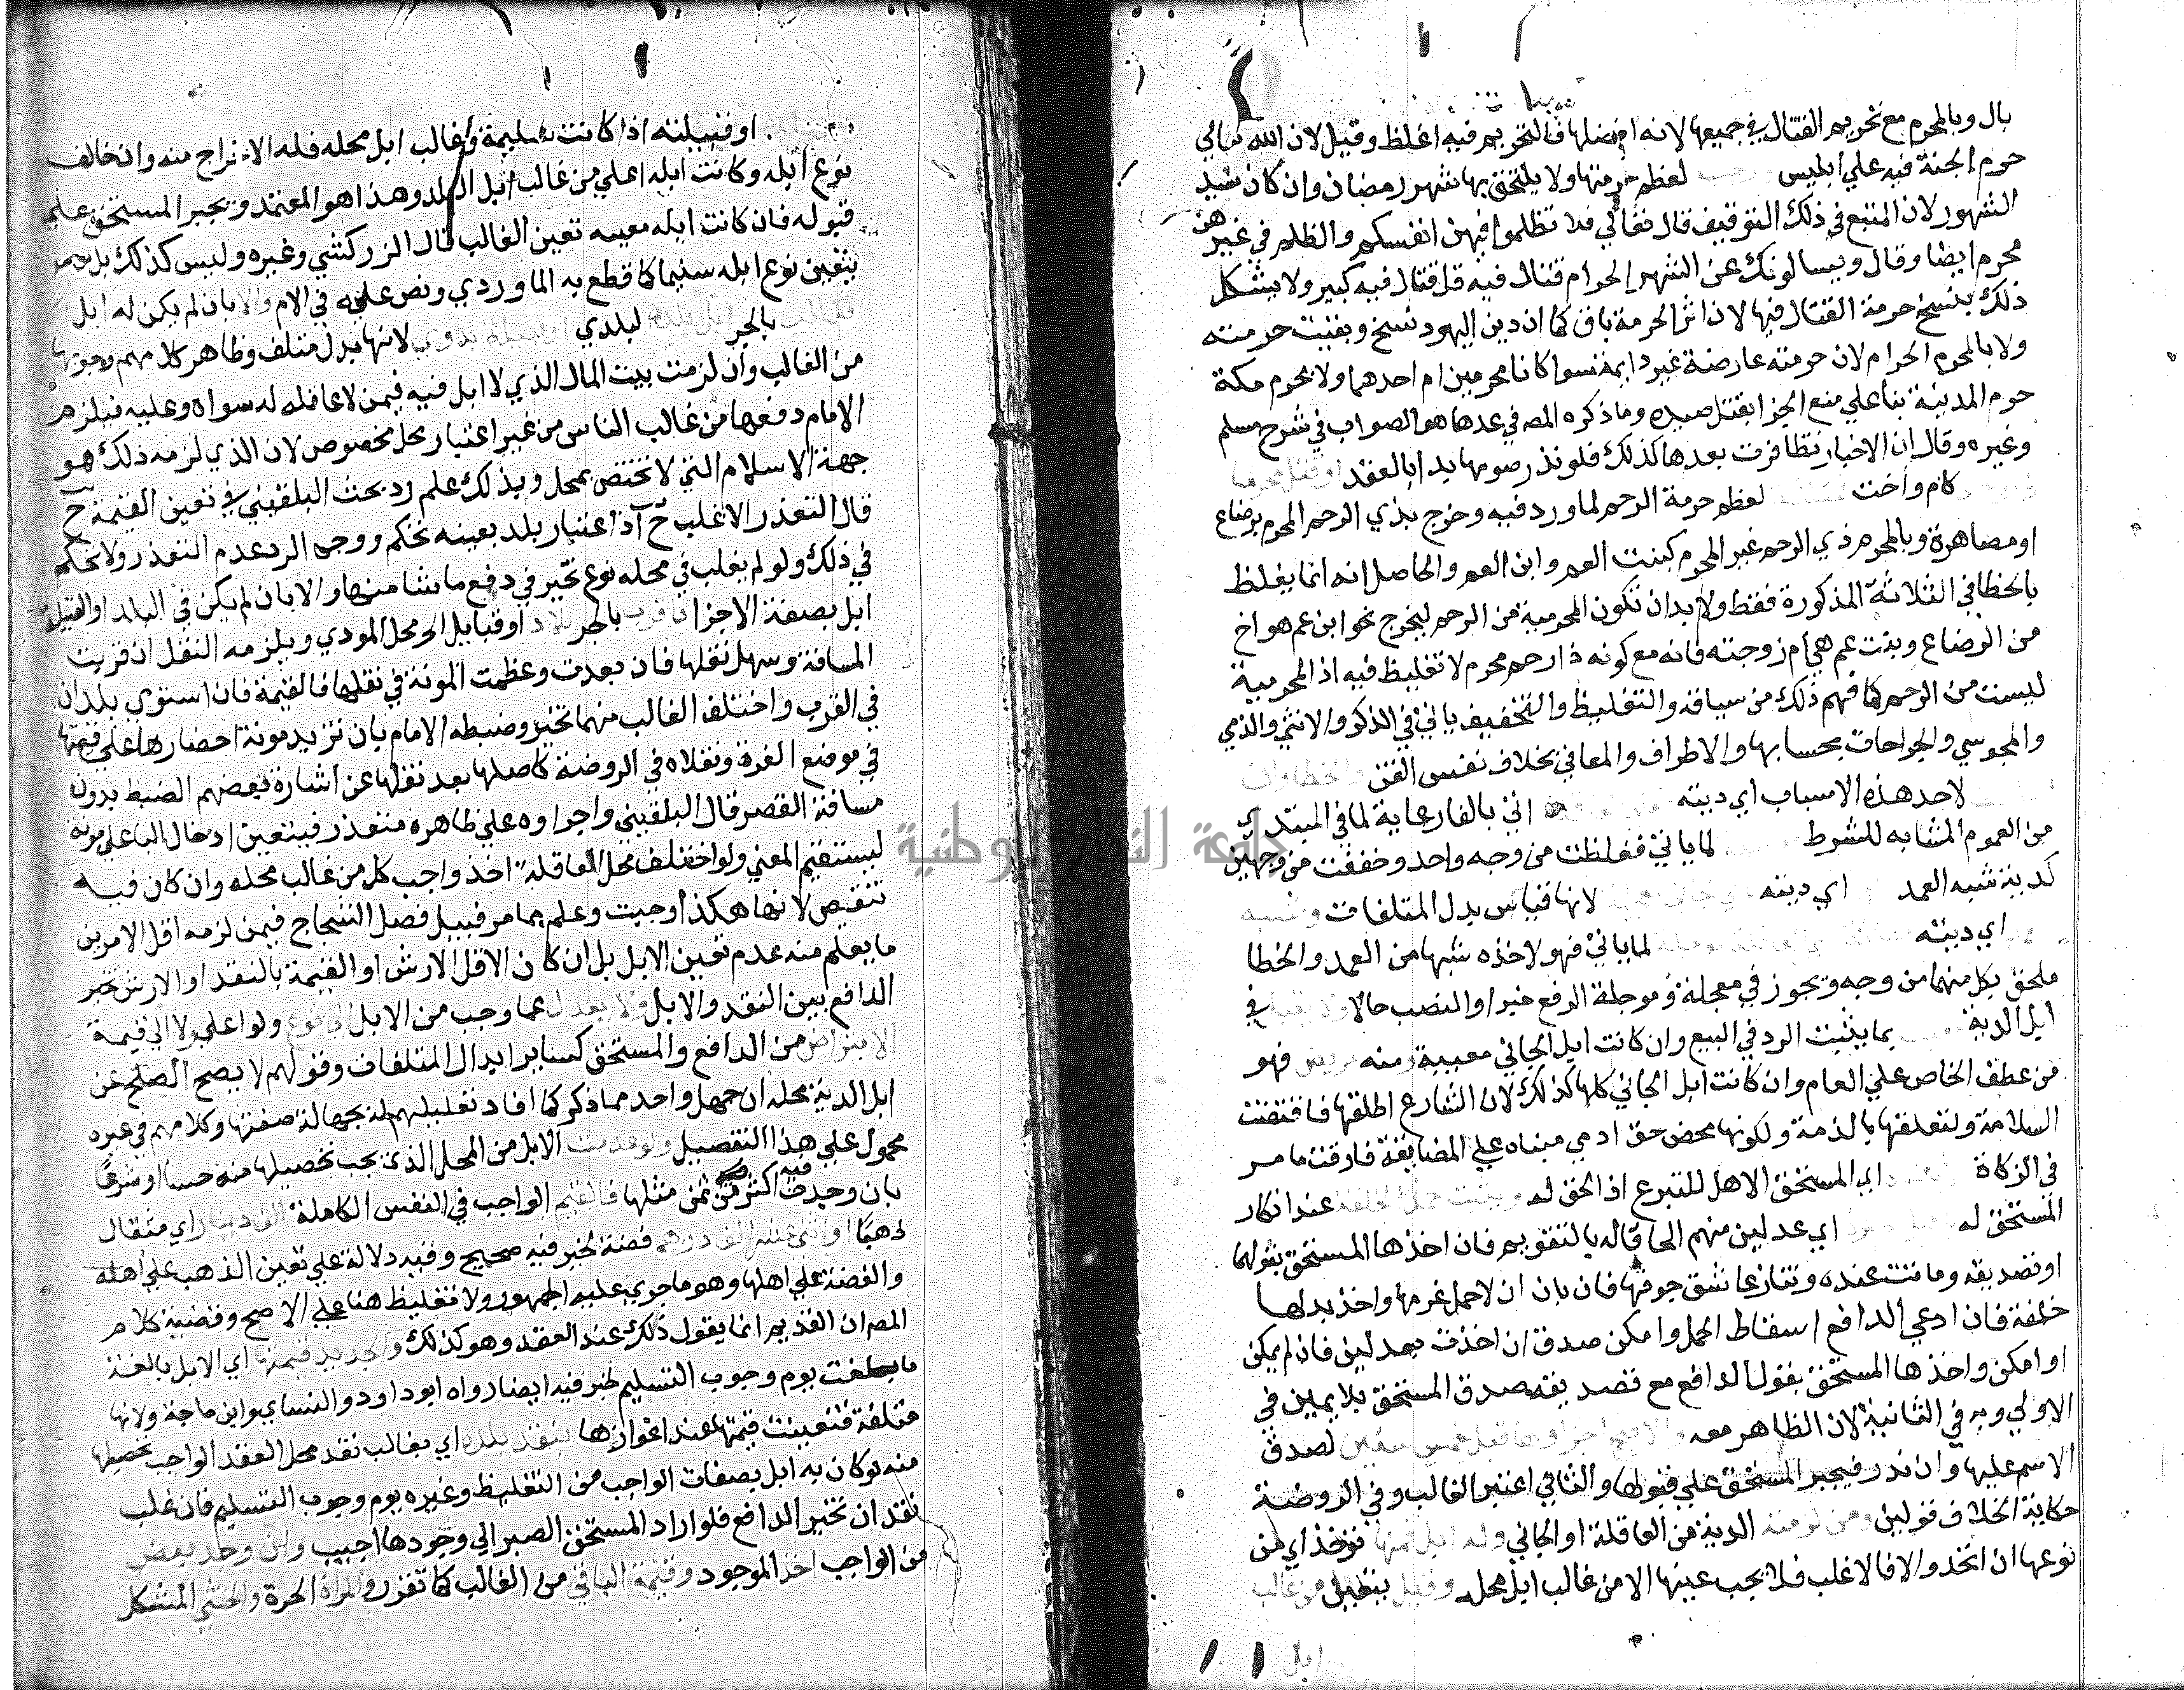 بال وبالمحرم مع تحريم القتال في جميعها لانه افضلها فالتحريم فيه اغلظ وقيل لان الله تعالي
حرم الجنة فيه علي ابليس لعظم حرمتها ولا يلتحق بها شهر رمضان وان كان سيد
الشهور لان المتبع في ذلك التوقيف قال تعالي فلا تظلموا فيهن انفسكم والظلم في غيرهن
محرم ايضا وقال ويسالونك عن الشهر الحرام قتال فيه قل قتال فيه كبير ولا يشكل
ذلك بنسخ حرمة القتال فيها لان اثر الحرمة باق كما ان دين اليهود نسخ وبقيت حرمته
ولا بالمحرم الحرام لان حرمته عارضة غير دايمة سوا كانا محرمين ام احدهما ولا بحرم مكة
حرم المدينة بنا علي منع الجزا بقتل صيده وما ذكره المص في عدها هو الصواب في شرح مسلم
وغيره وقال ان الاخبار تظافرت بعدها كذلك فلو نذر صومها بدا بالعقد
كام واخت لعظم حرمة الرحم لما ورد فيه وخرج بذي الرحم المحرم برضاع
او مصاهرة وبالمحرم ذي الرحم غير المحرم كبنت العم وابن العم والحاصل انه انما يغلظ
بالخطا في الثلاثة المذكورة فقط ولا بد ان تكون المحرمية من الرحم ليخرج نحو ابن عم هو اخ
من الرضاع وبنت عم هي ام زوجته فانه مع كونه ذا رحم محرم لا تغليظ فيه اذ المحرمية
ليست من الرحم كما فهم ذلك من سياقه والتغليظ والتخفيف ياتي في الذكر والانثي والذمي
والمجوسي والجراحات بحسابها والاطراف والمعاني بخلاف نفس القن والخطا وان
لاحد هذه الاسباب اي ديته اتي بالفا رعاية لما في المبتدا
من العموم المشابه للشرط لما ياتي فغلظت من وجه واحد وخففت من وجهين
كدية شبه العمد اي ديته لانها قياس بدل المتلفات وشبه
اي ديته لما ياتي فهو لاخذه شبها من العمد والخطا
ملحق بكل منهما من وجه ويجوز في معجلة وموجلة الرفع خبرا والنصب حالا ولا يقبل في
ابل الدية بما يثبت الرد في البيع وان كانت ابل الجاني معيبة ومنه مريض فهو
من عطف الخاص علي العام وان كانت ابل الجاني كلها كذلك لان الشارع اطلقها فاقتضت
السلامة ولتعلقها بالذمة ولكونها محض حق ادمي مبناه علي المضايقة فارقت ما مر
في الزكاة اي المستحق الاهل للتبرع اذ الحق له ويثبت حمل الخلفة عند انكار
المستحق له اي عدلين منهم الحاقا له بالتقويم فان اخذها المستحق بقولهما
او تصديقه وماتت عنده وتنازعا شق جوفها فان بان ان لا حمل غرمها واخذ بدلها
خلفة فان ادعي الدافع اسقاط الحمل وامكن صدق ان اخذت بعدلين فان لم يمكن
او امكن واخذها المستحق بقول الدافع مع تصديقه صدق المستحق بلا يمين في
الاولي وبه في الثانية لان الظاهر معه والاصح اجزاوها قبل خمس سنين لصدق
الاسم عليها وان ندر فيجبر المستحق علي قبولها والثاني اعتبر الغالب وفي الروضة
حكاية الخلاف قولين ومن لزمته الدية من العاقلة او الجاني وله ابل فمنها توخذ اي من
نوعها ان اتحد والا فالاغلب فلا يجب عينها الا من غالب ابل محله وقيل يتعين من غالب
ابل
او قبيلته اذا كانت سليمة وغالب ابل محله فله الاخراج منه وان خالف
نوع ابله وكانت ابله اعلي من غالب ابل البلد وهذا هو المعتمد ويجبر المستحق علي
قبوله فان كانت ابله معيبه تعين الغالب قال الزركشي وغيره وليس كذلك بل
يتعين نوع ابله سليما كما قطع به الماوردي ونص عليه في الام والا بان لم يكن له ابل
بالجر لبلدي لانها بدل متلف وظاهر كلامهم وجوبها
من الغالب وان لزمت بيت المال الذي لا ابل فيه فيمن لا عاقلة له سواه وعليه فيلزم
الامام دفعها من غالب الناس من غير اعتبار محل مخصوص لان الذي لزمه ذلك هو
جهة الاسلام التي لا تختص بمحل وبذلك علم رد بحث البلقيني في تعين القيمة ح
قال التعذر الاغلب ح اذ اعتبار بلد بعينه تحكم ووجه الرد عدم التعذر ولا تحكم
في ذلك ولو لم يغلب في محله نوع تخير في دفع ما شا منها والا بان لم يكن في البلد او القبيلة
ابل بصفة الاجزا فاقرب بالجر بلاد او قبايل الي محل المودي ويلزمه النقل ان قربت
المسافة وسهل نقلها فان بعدت وعظمت المونة في نقلها فالقيمة فان استوي بلدان
في القرب واختلف الغالب منهما تخير وضبطه الامام بان تزيد مونة احضارها علي قيمتها
في موضع الغرة ونقلاه في الروضة كاصلها بعد نقلها عن اشارة بعضهم الضبط بدون
مسافة القصر قال البلقيني واجراوه علي ظاهره متعذر فيتعين ادخال البا علي مونة
ليستقيم المعني ولو اختلف محل العاقلة اخذ واجب كل من غالب محله وان كان فيه
تنقيص لانها هكذا وجبت وعلم مما مر قبيل فصل الشجاج فيمن لزمه اقل الامرين
ما يعلم منه عدم تعين الابل بل ان كان الاقل الارش او القيمة بالنقد او الارش تخير
الدافع بين النقد والابل ولا يعدل عما وجب من الابل الي نوع ولو اعلي ولا الي قيمة
الا بتراض من الدافع والمستحق كساير ابدال المتلفات وقولهم لا يصح الصلح عن
ابل الدية محله ان جهل واحد مما ذكر كما افاد تعليلهم له بجهالة صفتها وكلامهم في غيره
محمول علي هذا التفصيل ولو عدمت الابل من المحل الذي يجب تحصيلها منه حسا او شرعا
بان وجدت فيه اكثر من ثمن مثلها فالقديم الواجب في النفس الكاملة الف دينار اي مثقال
ذهبا او اثني عشر الف درهم فضة لخبر فيه صحيح وفيه دلالة علي تعين الذهب علي اهله
والفضة علي اهلها وهو ما جري عليه الجمهور ولا تغليظ هنا علي الاصح وقضية كلام
المص ان القديم انما يقول ذلك عند العقد وهو كذلك والجديد قيمتها اي الابل بالغة
ما بلغت يوم وجوب التسليم لخبر فيه ايضا رواه ابو داود والنساي وابن ماجة ولانها
متلفة فتعينت قيمتها عند اعوازها بنقد بلده اي بغالب نقد محل العقد الواجب تحصيلها
منه لو كان به ابل بصفات الواجب من التغليظ وغيره يوم وجوب التسليم فان غلب
نقدان تخير الدافع فلو اراد المستحق الصبر الي وجودها اجيب وان وجد بعض
من الواجب اخذ الموجود وقيمة الباقي من الغالب كما تقرر والمراة الحرة والخنثي المشكل